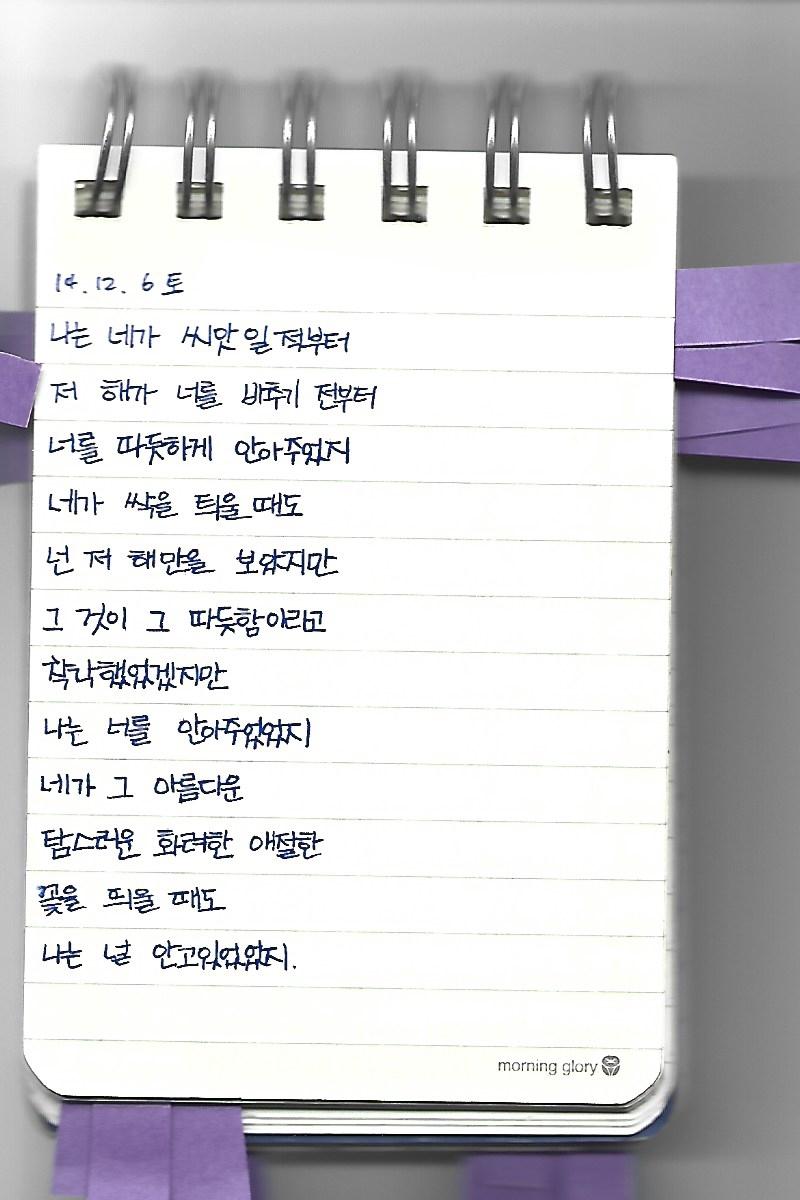 14.12. 6 토
나는 네가 씨앗일적부터
저 해가 너를 비추기 전부터
너를 따듯하게 안아주었지
네가 싹을 틔울때도
넌 저 해만을 보았지만
그 것이 그 따듯함이라고
착각했었겠지만
나는 너를 안아주었었지
네가 그 아름다운
탐스러운 화려한 애절한
꽃을 띄울 때도
나는 널 안고있었었지.
morning glory